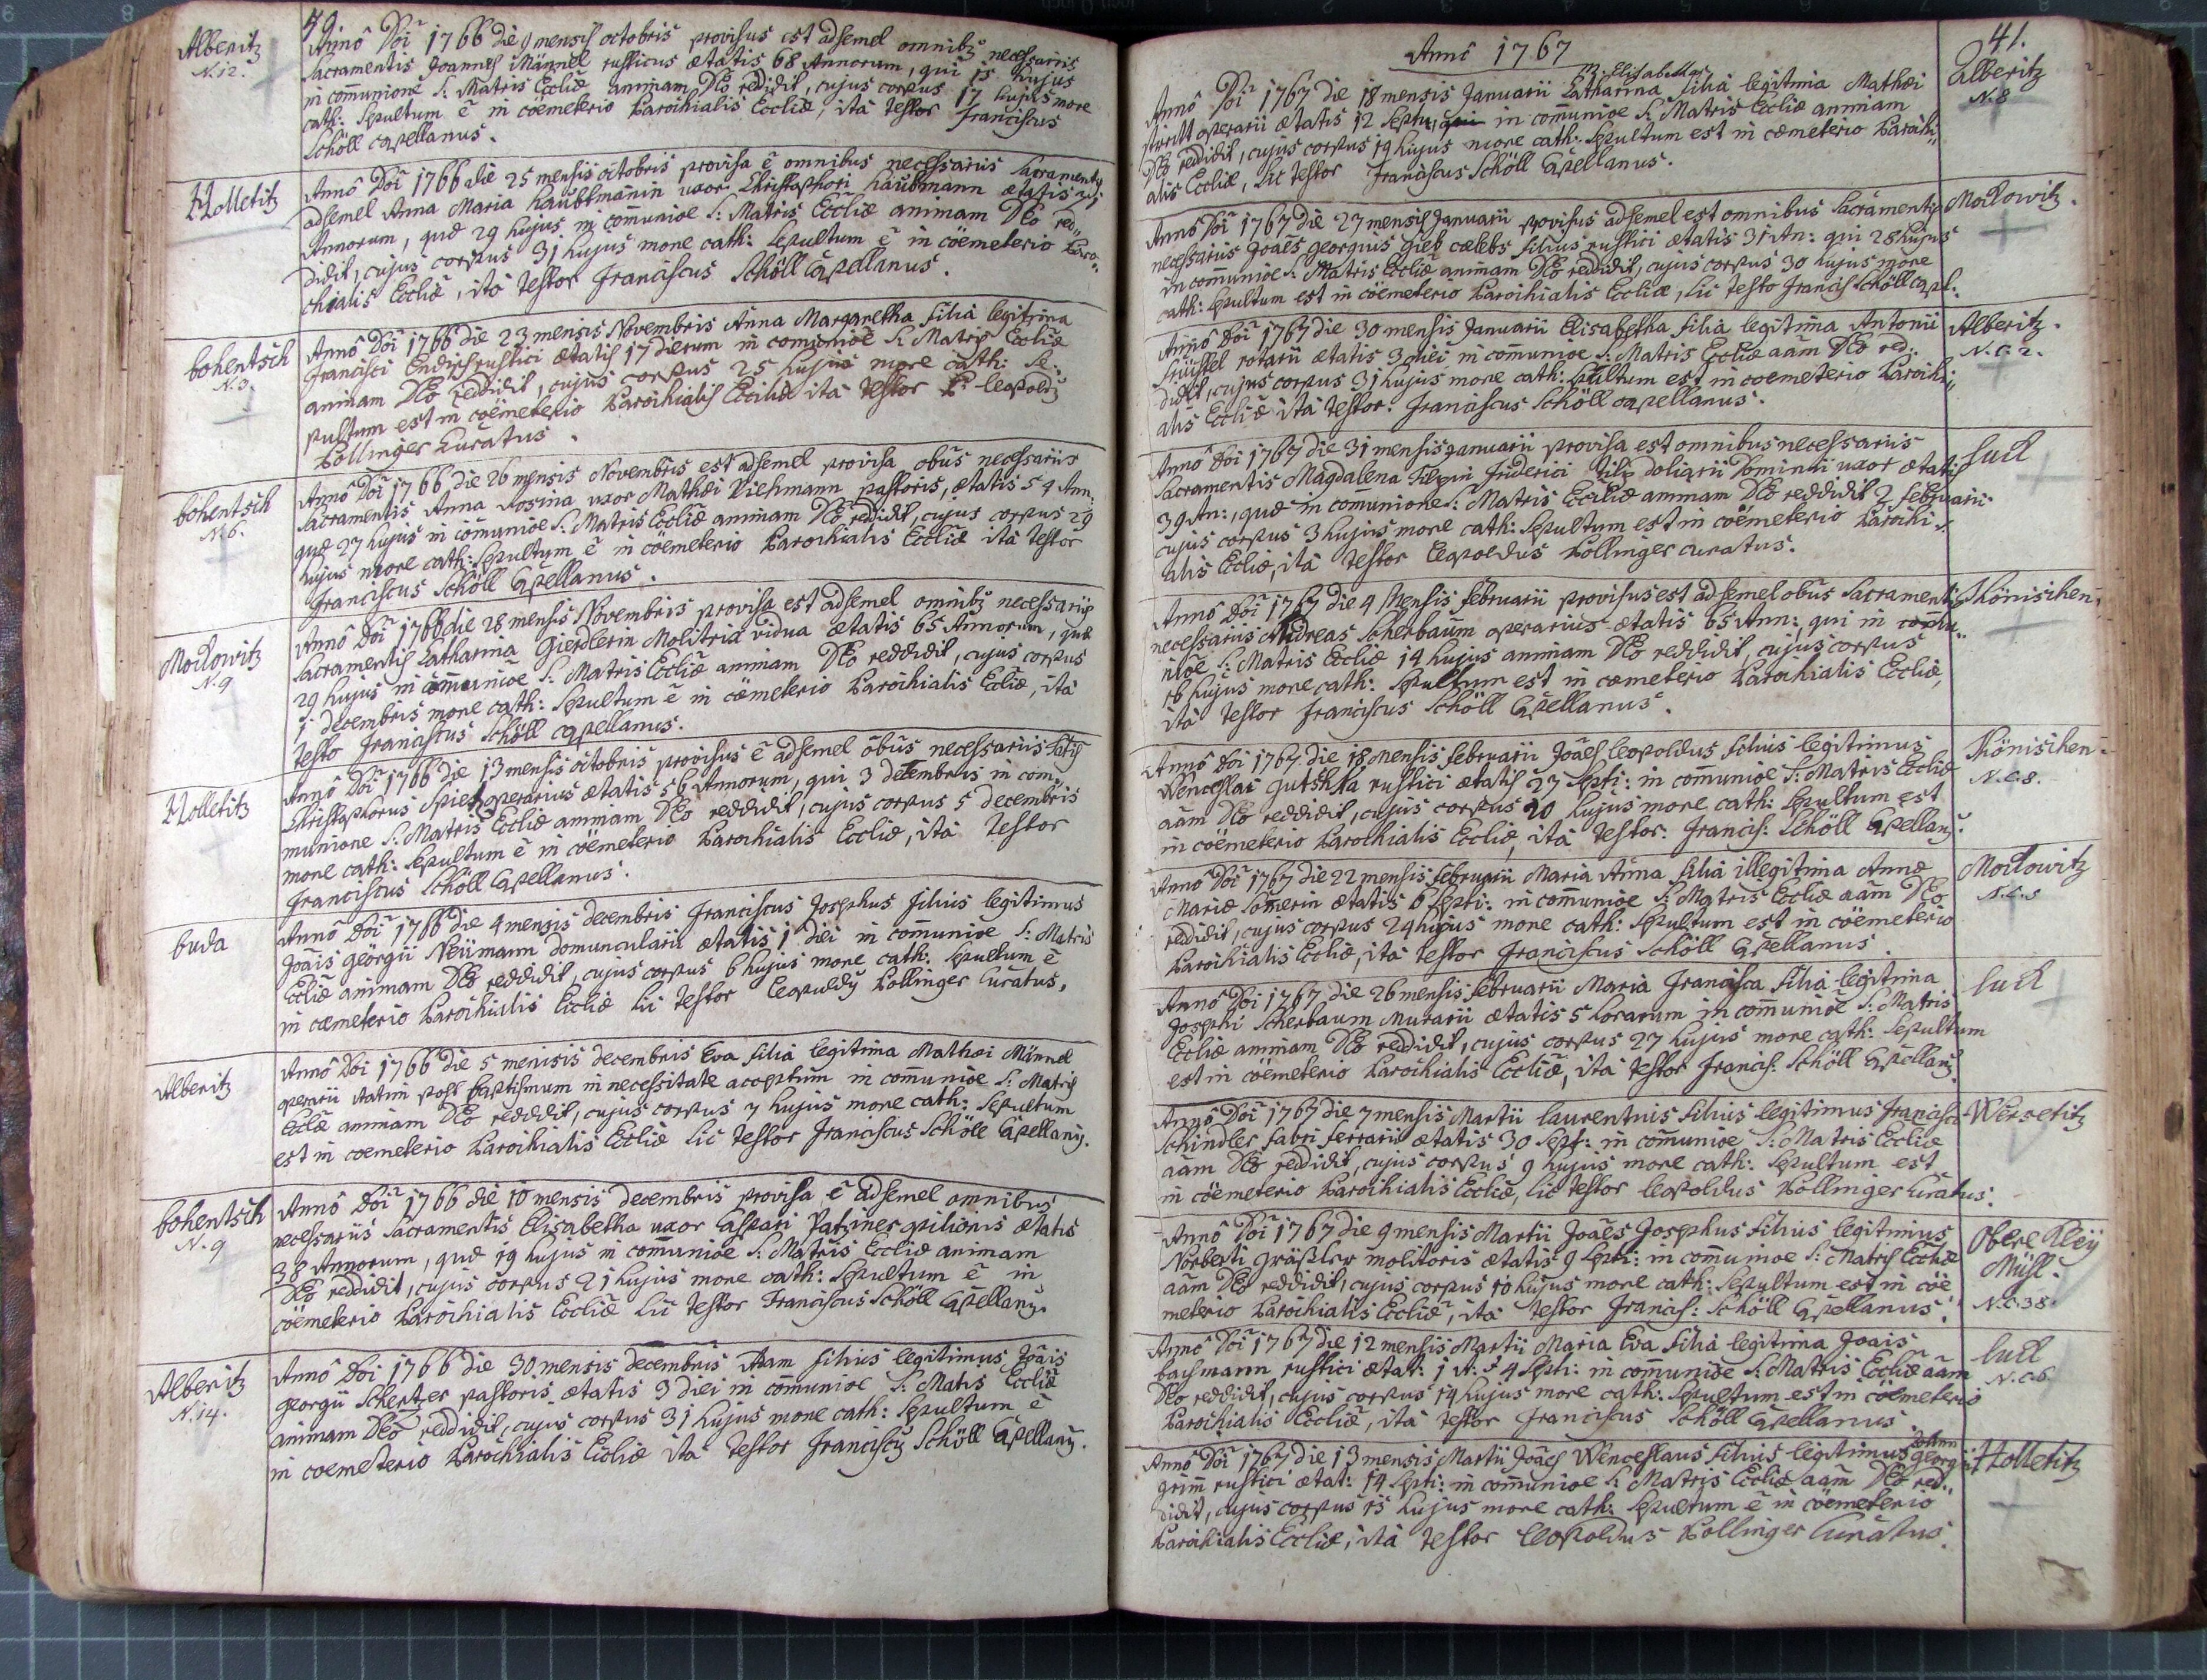 40.
Alberitz
N. 12.
Annô Dñi 1766 die 9 mensis octobris provisus est adsemel omnibꝫ necessariis
Sacramentis Joannes Männel rusticus ætatis 68 Annorum, qui 15 hujus
in com̄unione S: Matris Eccliæ animam Deo reddidit, cujus corpus 17 hujus more
cath: sepultum ē in cöemeterio Parochialis Eccliæ, ità testor Franciscus
Schöll capellanus.
Holletitz
Annô Dñi 1766 die 25 mensis octobris provisa ē omnibus necessariis Sacramentis
adsemel Anna Maria Haubtmannin uxor Christophori Haubmann ætatis
Annorum, quæ 29 hujus in com̄unioe S: Matris Eccliæ animam Deo red„
didit, cujus corpus 31 hujus more cath: sepultum ē in cöemeterio Paro„
chialis Eccliæ, ità testor Franciscus Schöll Capellanus.
bohentsch
N. 3.
Annô Dñi 1766 die 23 mensis Novembris Anna Margaretha filia legitima
Francisci Endisch rustici ætatis 17 dierum in com̄unioe S: Matris Eccliæ
animam Deo reddidit, cujus corpus 25 hujus more cath: Se„
pultum est in cöemeterio Parochialis Eccliæ ità testor P. leopoldꝫ
Pollinger Curatus.
bohentsch
N. 6.
Annô Dñi 1766 die 26 mensis Novembris est adsemel provisa obūs necessariis
Sacramentis Anna Rosina uxor Mathæi Viehmann pastoris, ætatis 54 Ann:
quæ 27 hujus in com̄unioe S: Matris Eccliæ animam Deo reddidit, cujus corpus 29
hujus more cath: sepultum ē in cöemeterio Parochialis Eccliæ ità testor
Franciscus Schöll Capellanus.
Moclowitz
N. 9
Annô Dñi 1766 die 28 mensis Novembris provisa est adsemel omnibꝫ necessariis
Sacramentis Catharina Gierdlerin Molitria vidua ætatis 65 Annorum, quæ
29 hujus in com̄unioe S: Matris Eccliæ animam Deo reddidit, cujus corpus
1 decembris more cath: sepultum ē in cöemeterio Parochialis Eccliæ, ità
testo Franciscus Schöll capellanus.
Holletitz
Annô Dñi 1766 die 13 mensis octobris provisus ē adsemel obūs necessariis Satis
Christophorus Spies operarius ætatis 56 Annorum, qui 3 decembris in com„
munione S: Matris Eccliæ animam Deo reddidit, cujus corpus 5 decembris
more cath: sepultum ē in cöemeterio Parochialis Eccliæ, ità testor
Franciscus Schöll Capellanus.
buda
Annô Dñi 1766 die 4 mensis decembris Franciscus Josephus filius legitimus
Joāis Geörgii Neümann domuncularii ætatis 1 diei in com̄unioe S: Matris
Eccliæ animam Deo reddidit, cujus corpus 6 hujus more cath: sepultum ē
in cœmeterio Parochialis Eccliæ sic testor leopuldꝫ Pollinger Curatus.
Alberitz
Annô Dñi 1766 die 5 mensis decembris Eva filia legitima Mathæi Männel
operarii statim post baptismum in necessitate acceptum in com̄unioe S: Matris
Eccliæ animam Deo reddidit, cujus corpus 7 hujus more cath: sepultum
est in coemeterio Parochialis Eccliæ sic testor Franciscus Schöll Capellanꝫ.
bohentsch
N. 9
Annô Dñi 1766 die 10 mensis decembris provisa ē adsemel omnibus
necessariis Sacramentis Elisabetha uxor Caspari Patziner opilionis ætatis
38 Annorum, quæ 19 hujus in com̄unioe S: Matris Eccliæ animam
Deo reddidit, cujus corpus 21 hujus more cath: sepultum ē in
cöemeterio Parochialis Eccliæ sic testor Franciscus Schöll Capellanꝫ.
Alberitz
N. 14.
Annô Dñi 1766 die 30 mensis decembris Adam filius legitimus Joāis
georgii Schertzer pastoris ætatis 3 diei in com̄unioe S: Matis Eccliæ
animam Deo reddidit, cujus corpus 31 hujus more cath: sepultum ē
in coemeterio Parochialis Eccliæ ità testor Franciscꝫ Schöll Capellanꝫ.
41.
Annô 1767
Alberitz
N. 8
M. Elisabetha
Annô Dñi 1767 die 18 mensis Januarii Catharina filia legitima Mathæi
operarii ætatis 12 Septi, in com̄unioe S: Matris Eccliæ animam
Deo reddidit, cujus corpus 19 hujus more cath: sepultum est in cœmeterio Parochi„
alis Eccliæ, sic testor Franciscus Schöll Capellanus.
Moclowitz.
Annô Dñi 1767 die 27 mensis Januarii provisus adsemel est omnibus Sacramentis
necessariis Joāes georgius Gieb cælebs filius rustici ætatis 31 An: qui 28 hujus
in com̄unioe S: Matris Eccliæ animam Deo reddidit, cujus corpus 30 hujus more
cath: sepultum est in cöemeterio Parochialis Eccliæ, sic testo Francis Schöll capl:
Alberitz.
N. C. 2.
Annô Dñi 1767 die 30 mensis Januarii Elisabetha filia legitima Antonii
rotarii ætatis 3 diei in com̄unioe S: Matris Eccliæ aām Deo red„
didit, cujus corpus 31 hujus more cath: sepultum est in coemeterio Parochi„
alis Eccliæ ità testor. Franciscus Schöll capellanus.
luck
Annô Dñi 1767 die 31 mensis Januarii provisa est omnibus necessariis
Sacramentis Magdalena Filzin Friderici Filz doliarii Dominii uxor ætatis
39 An:, quæ in com̄unione S: Matris Eccliæ animam Deo reddidit 2 februarii
cujus corpus 3 hujus more cath: sepultum est in cöemeterio Parochi„
alis Eccliæ, ità testor leopoldus Pollinger curatus.
Thönischen.
Annô Dñi 1767 die 4 Mensis februarii provisus est adsemel obūs Sacramentis
necessariis Andreas Scherbaum operarius ætatis 65 Ann:, qui in com̄u„
nioe S: Matris Eccliæ 14 hujus animam Deo reddidit, cujus corpus
16 hujus more cath: sepultum est in cœmeterio Parochialis Eccliæ,
ità testor Franciscus Schöll Capellanus.
Thönischen.
N. C. 8.
Annô Dñi 1767 die 18 mensis februarii Joāes leopoldus filius legitimus
Wenceslai Gutshka rustici ætatis 27 Septi: in com̄unioe S: Matris Eccliæ
aām Deo reddidit, cujus corpus 20 hujus more cath: sepultum est
in cöemeterio Parochialis Eccliæ, ità testor: Francis: Schöll Capellanꝫ.
Moclowitz
N. C. 5
Annô Dñi 1767 die 22 mensis februarii Maria Anna filia illegitima Annæ
Mariæ Som̄erin ætatis 6 Septi: in com̄unioe S: Matris Eccliæ aām Deo
reddidit, cujus corpus 24 hujus more cath: sepultum est in cöemeterio
Parochialis Eccliæ, ità testor Franciscus Schöll Capellanus.
luck
Annô Dñi 1767 die 26 mensis februarii Maria Francisca filia legitima
Josephi Scherbaum Murarii ætatis 5 horarum in com̄unioe S: Matris
Eccliæ animam Deo reddidit, cujus corpus 27 hujus more cath: sepultum
est in cöemeterio Parochialis Eccliæ, ità testor Francis: Schöll Capellanꝫ
Werscetitz
Annô Dñi 1767 die 7 mensis Martii laurentius filius legitimus Francisci
Schindler fabri ferrarii ætatis 30 Sept: in com̄unioe S: Matris Eccliæ
aām Deo reddidit, cujus corpus 9 hujus more cath: sepultum est
in cöemeterio Parochialis Eccliæ, sic testor leopoldus Pollinger Curatus.
Obere Kleÿ
Mühl.
N. C. 38
Annô Dñi 1767 die 9 mensis Martii Joāes Josephus filius legitimus
Norberti molitoris ætatis 9 Septi: in com̄unioe S: Matris Eccliæ
aām Deo reddidit, cujus corpus 10 hujus more cath: sepultum est in cöe
meterio Parochialis Eccliæ, ità testor Francis: Schöll Capellanus.
luck
N. C. 6
Annô Dñi 1767 die 12 mensis Martii Maria Eva filia legitima Joais
bachmann rustici ætat: 1 A: & 4 Septi: in com̄unioe S: Matris Eccliæ aām
Deo reddidit, cujus corpus 14 hujus more cath: sepultum est in cöemeterio
Parochialis Eccliæ, ità testor Franciscus Schöll Capellanus
Holletitz
Johann
Annô Dñi 1767 die 13 mensis Martii Joāes Wenceslaus filius legitimus georgii
grim̄ rustici ætat: 14 Septi: in com̄unioe S: Matris Eccliæ aām Deo red„
didit, cujus corpus 15 hujus more cath: sepultum ē in cöemeterio
Parochialis Eccliæ, ità testor leopoldus Pollinger Curatus.